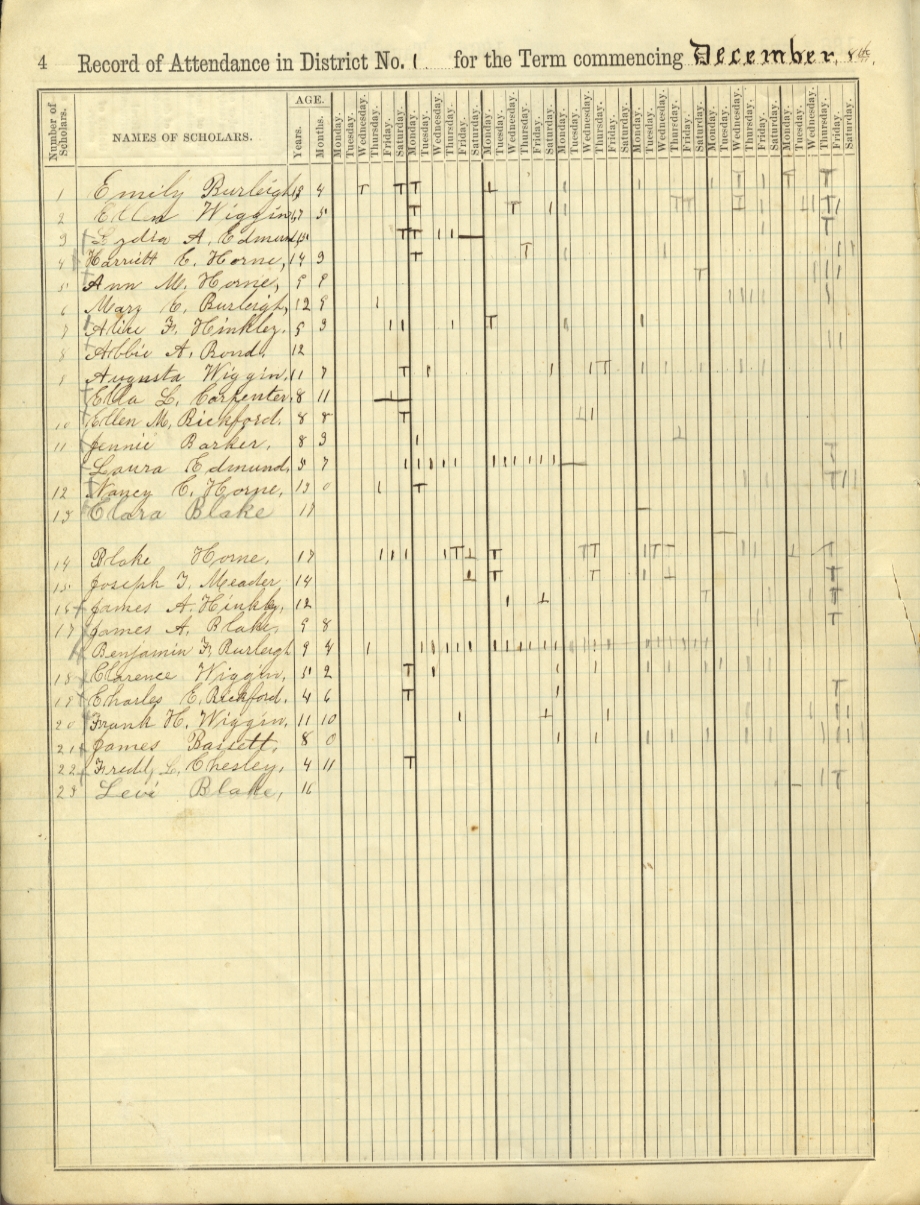 4 Record of Attendance in District No. 1 for the Term commencing December, 8th,
Number of Scholars. NAMES OF SCHOLARS. AGE. Years. Months. Monday. Tuesday. Wednesday. Thursday. Friday. Saturday. Monday. Tuesday. Wednesday. Thursday. Friday. Saturday. Monday. Tuesday. Wednesday. Thursday. Friday. Saturday. Monday. Tuesday. Wednesday. Thursday. Friday. Saturday. Monday. Tuesday. Wednesday. Thursday. Friday. Saturday. Monday. Tuesday. Wednesday. Thursday. Friday. Saturday. Monday. Tuesday. Wednesday. Thursday. Friday. Saturday.
1 Emily Burleigh 4
2 Ellen Wiggin, 5
3 Lydia A. Edmund,
4 Harriett E. Horne, 14 9
5 Ann M. Horne, 9 9
6 Mary E. Burleigh, 12 9
7 Alice F. Hinkley. 5 9
8 Abbie A. Bond. 12
9 Augusta Wiggin, 11 7
Ella L. Carpenter, 8 11
10 Ellen M. Bickford. 8 8
11 Jennie Barker, 8 9
Laura Edmund, 5 7
12 Nancy E. Horne, 13 0
13 Clara Blake 17
14 Blake Horne, 17
15 Joseph T. Meader 14
16 James A. Hinkley, 12
17 James A. Blake, 9 8
Benjamin F. Burleigh 9 4
18 Clarence Wiggin, 5 2
19 Charles E. Bickford. 4 6
20 Frank H. Wiggin, 11 10
21 James Bassett, 8 0
22 Freddy L. Chesley, 4 11
23 Levi Blake, 16